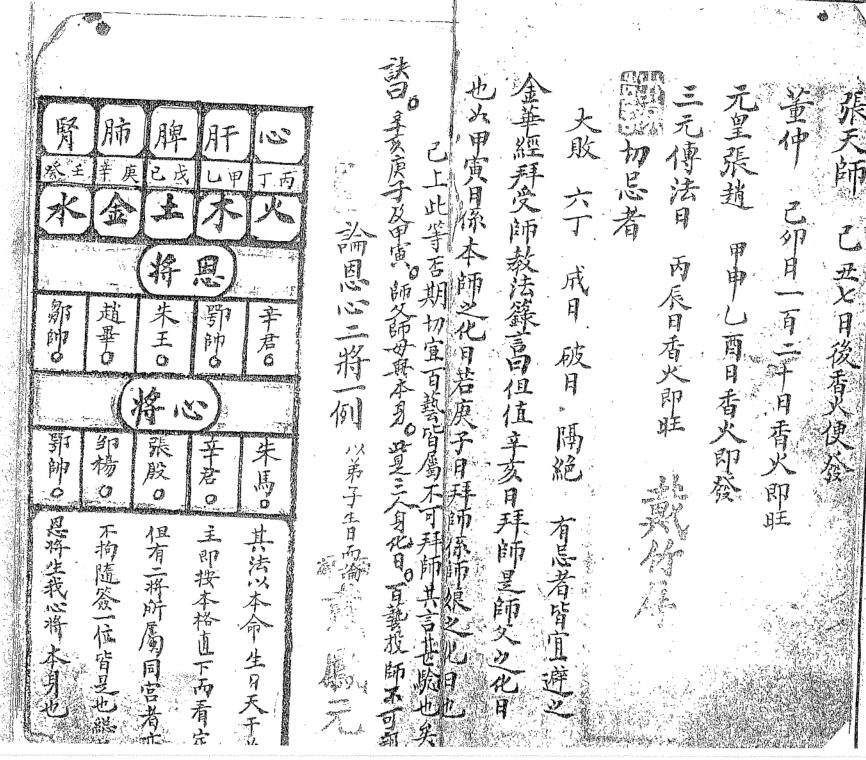 張天師 己丑七日後香火便發
董仲 己卯日一百二十日香火即旺
元皇張趙 甲申乙酉日香火即發
三元傳法日 丙辰日香火即旺
戴竹
切忌者
大敗 六丁 成日 破日 隔絶 有忌者皆宜避之
金華經拜受師教法籙言曰但值辛亥日拜師是師父之化日
也如甲寅日係本師之化日若庚子日拜師係師娘之化日也
已上此等否期切宜百藝皆屬不可拜師其言甚驗也矣
訣曰。辛亥庚子及甲寅。師父師母與本身。此是三人身化日。百藝投師不可
論恩心二將一例 以弟子生日而論
元
心 肝 脾 肺 腎
丙丁 甲乙 戊己 庚辛 壬癸
火 木 土 金 水
恩將
辛君 鄂帥 朱王 趙畢 鄒帥
心將
朱馬 辛君 張殷 邹楊 鄂帥
其法以本命生日天干
主即按本格直下而看定
但有二將所屬同宮者
不拘隨簽一位皆是也總
恩將生我心將本身也